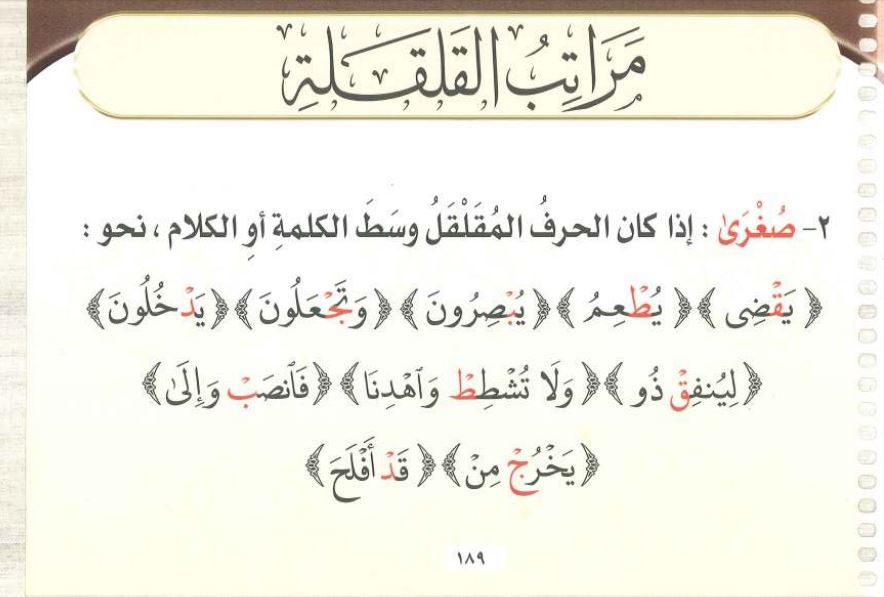 مَرَاتِبُ القَلقَلَةِ
٢- صُغْرَىٰ : إذا كان الحرفُ المُقَلْقَلُ وسَطَ الكلمةِ أوِ الكلامِ ، نحو :
﴿ يَقْضِى ﴾ ﴿ يُطْعِمُ ﴾ ﴿ يُبْصِرُونَ ﴾ ﴿ وَتَجْعَلُونَ ﴾ ﴿ يَدْخُلُونَ ﴾
﴿ لِيُنفِقْ ذُو ﴾ ﴿ وَلَا تُشْطِطْ وَٱهْدِنَا ﴾ ﴿ فَٱنصَبْ وَإِلَىٰ ﴾
﴿ يَخْرُجْ مِنْ ﴾ ﴿ قَدْ أَفْلَحَ ﴾
١٨٩